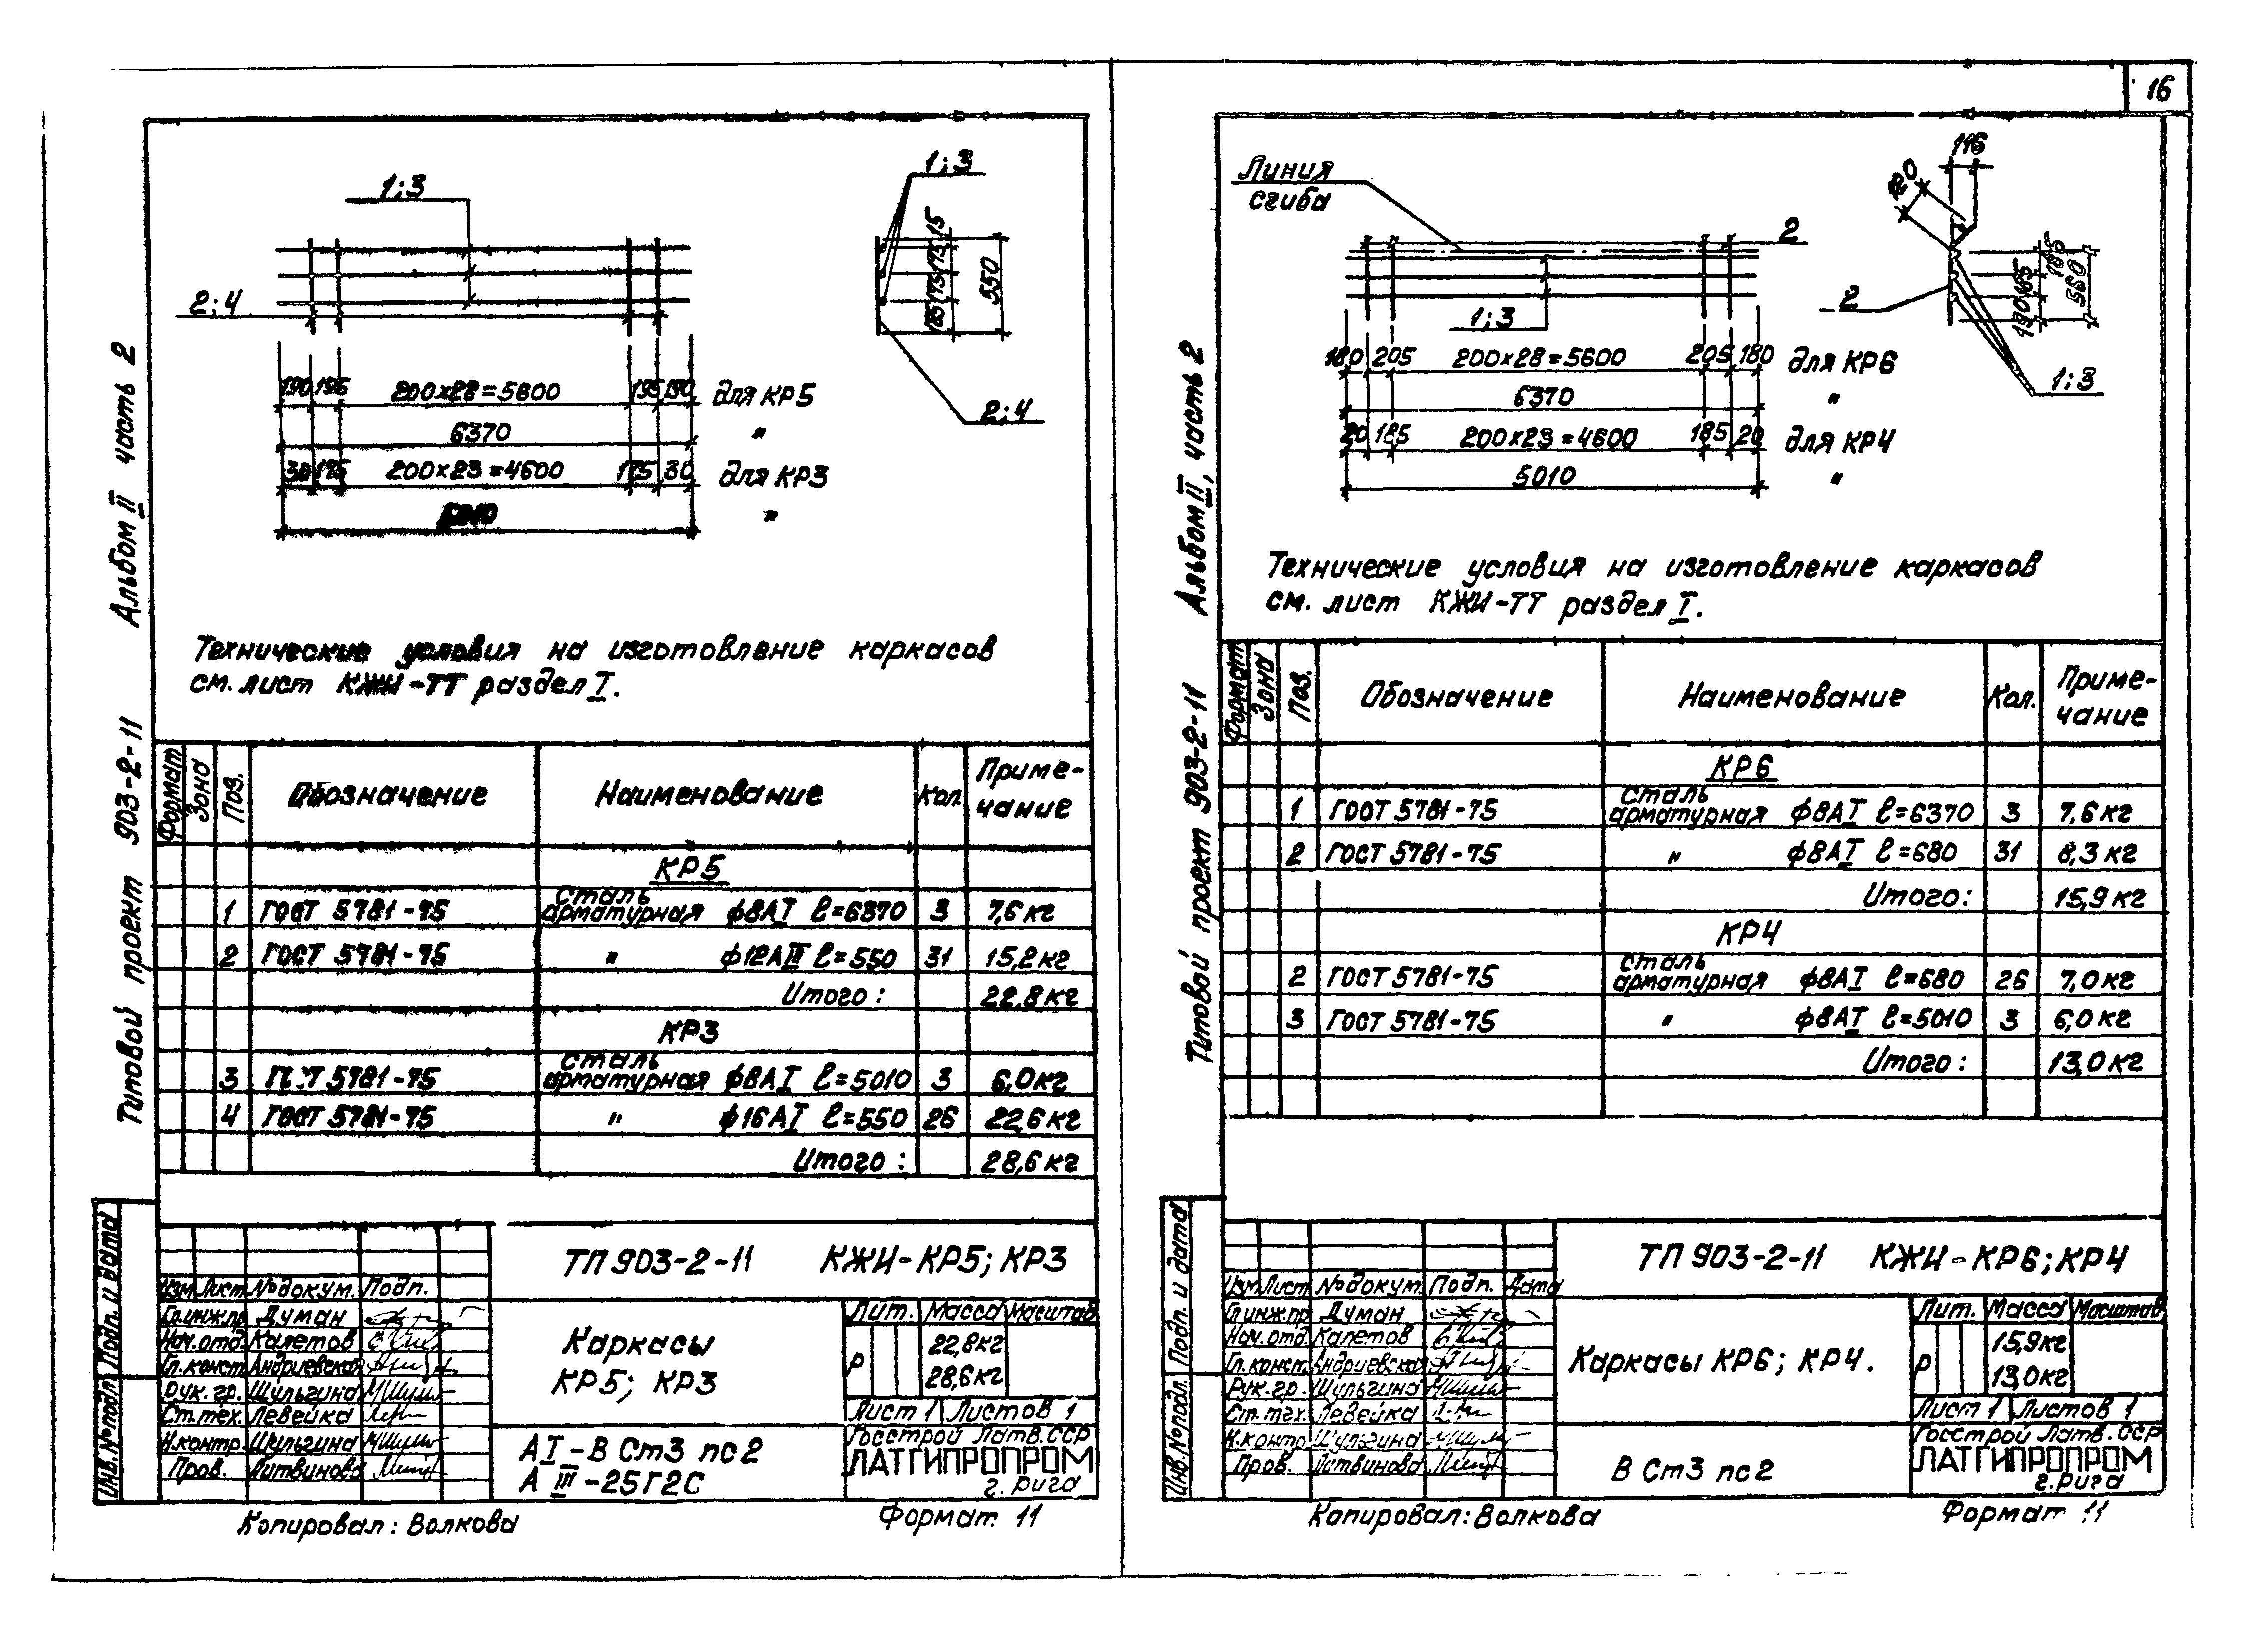 16
Альбом II часть 2
Типовой проект 903-2-11
1; 3
1; 3
2; 4
15
175
175
185
550
2; 4
190 195 200x28=5600 195 190 для КР5
6370 "
30 175 200x23=4600 175 30 для КР3
"
Технические условия на изготовление каркасов
см. лист КЖИ-ТТ раздел I.
Формат Зона Поз. Обозначение Наименование Кол. Приме-
чание
КР5
1 ГОСТ 5781-75 сталь арматурная ф8АI ℓ=6370 3 7,6 кг
2 ГОСТ 5781-75 " ф12АIII ℓ=550 31 15,2 кг
Итого: 22,8 кг
КР3
3 ГОСТ 5781-75 сталь арматурная ф8АI ℓ=5010 3 6,0 кг
4 ГОСТ 5781-75 " ф16АI ℓ=550 26 22,6 кг
Итого: 28,6 кг
Инв.№подл. Подп. и дата
ТП 903-2-11 КЖИ-КР5; КР3
Изм Лист №докум. Подп.
Гл.инж.пр. Думан
Нач.отд. Калетов
Гл.конст. Андриевская
Рук.гр. Шульгина
Ст.тех. Левейка
Н.контр. Шульгина
Пров. Литвинова
Каркасы
КР5; КР3
Лит. Масса Масштаб
Р 22,8кг
28,6кг
Лист 1 Листов 1
АI-В Ст3 пс2
АIII-25Г2С
Госстрой Латв.ССР
ЛАТГИПРОПРОМ
г. Рига
Копировал: Волкова Формат 11
Альбом II, часть 2
Типовой проект 903-2-11
Линия
сгиба
2
1; 3
116
2
185
185
190
560
1; 3
180 205 200x28=5600 205 180 для КР6
6370 "
20 185 200x23=4600 185 20 для КР4
5010 "
Технические условия на изготовление каркасов
см. лист КЖИ-ТТ раздел I.
Формат Зона Поз. Обозначение Наименование Кол. Приме-
чание
КР6
1 ГОСТ 5781-75 сталь арматурная ф8АI ℓ=6370 3 7,6 кг
2 ГОСТ 5781-75 " ф8АI ℓ=680 31 8,3 кг
Итого: 15,9 кг
КР4
2 ГОСТ 5781-75 сталь арматурная ф8АI ℓ=680 26 7,0 кг
3 ГОСТ 5781-75 " ф8АI ℓ=5010 3 6,0 кг
Итого: 13,0 кг
Инв.№подл. Подп. и дата
ТП 903-2-11 КЖИ-КР6; КР4
Изм Лист №докум. Подп. Дата
Гл.инж.пр. Думан
Нач.отд. Калетов
Гл.конст. Андриевская
Рук.гр. Шульгина
Ст.тех. Левейка
Н.контр. Шульгина
Пров. Литвинова
Каркасы КР6; КР4.
Лит. Масса Масштаб
Р 15,9кг
13,0кг
Лист 1 Листов 1
В Ст3 пс2
Госстрой Латв.ССР
ЛАТГИПРОПРОМ
г. Рига
Копировал: Волкова Формат 11